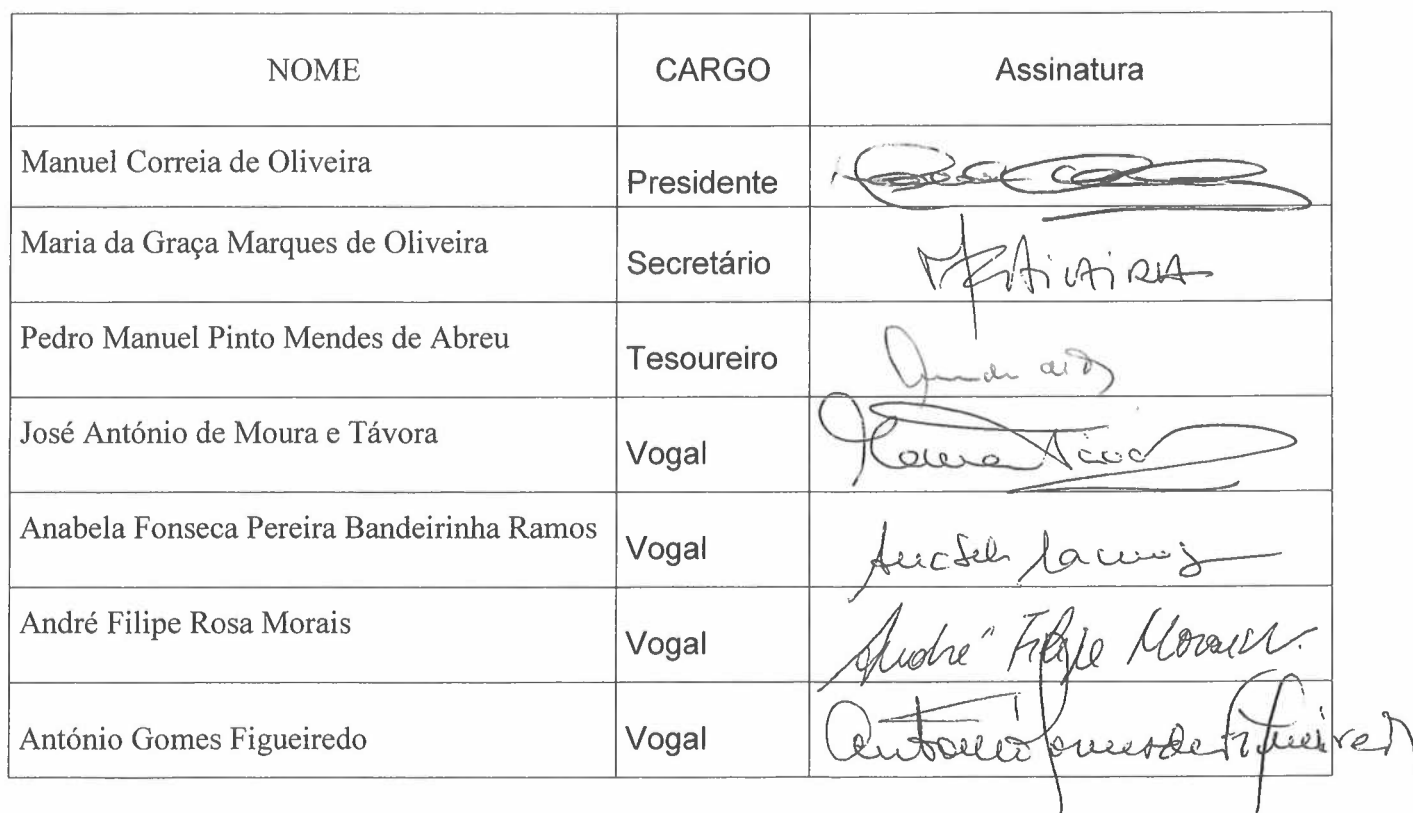 NOME CARGO Assinatura
Manuel Correia de Oliveira Presidente
Maria da Graça Marques de Oliveira Secretário
Pedro Manuel Pinto Mendes de Abreu Tesoureiro
José António de Moura e Távora Vogal
Anabela Fonseca Pereira Bandeirinha Ramos Vogal
André Filipe Rosa Morais Vogal André Filipe Morais.
António Gomes Figueiredo Vogal António Gomes de Figueiredo